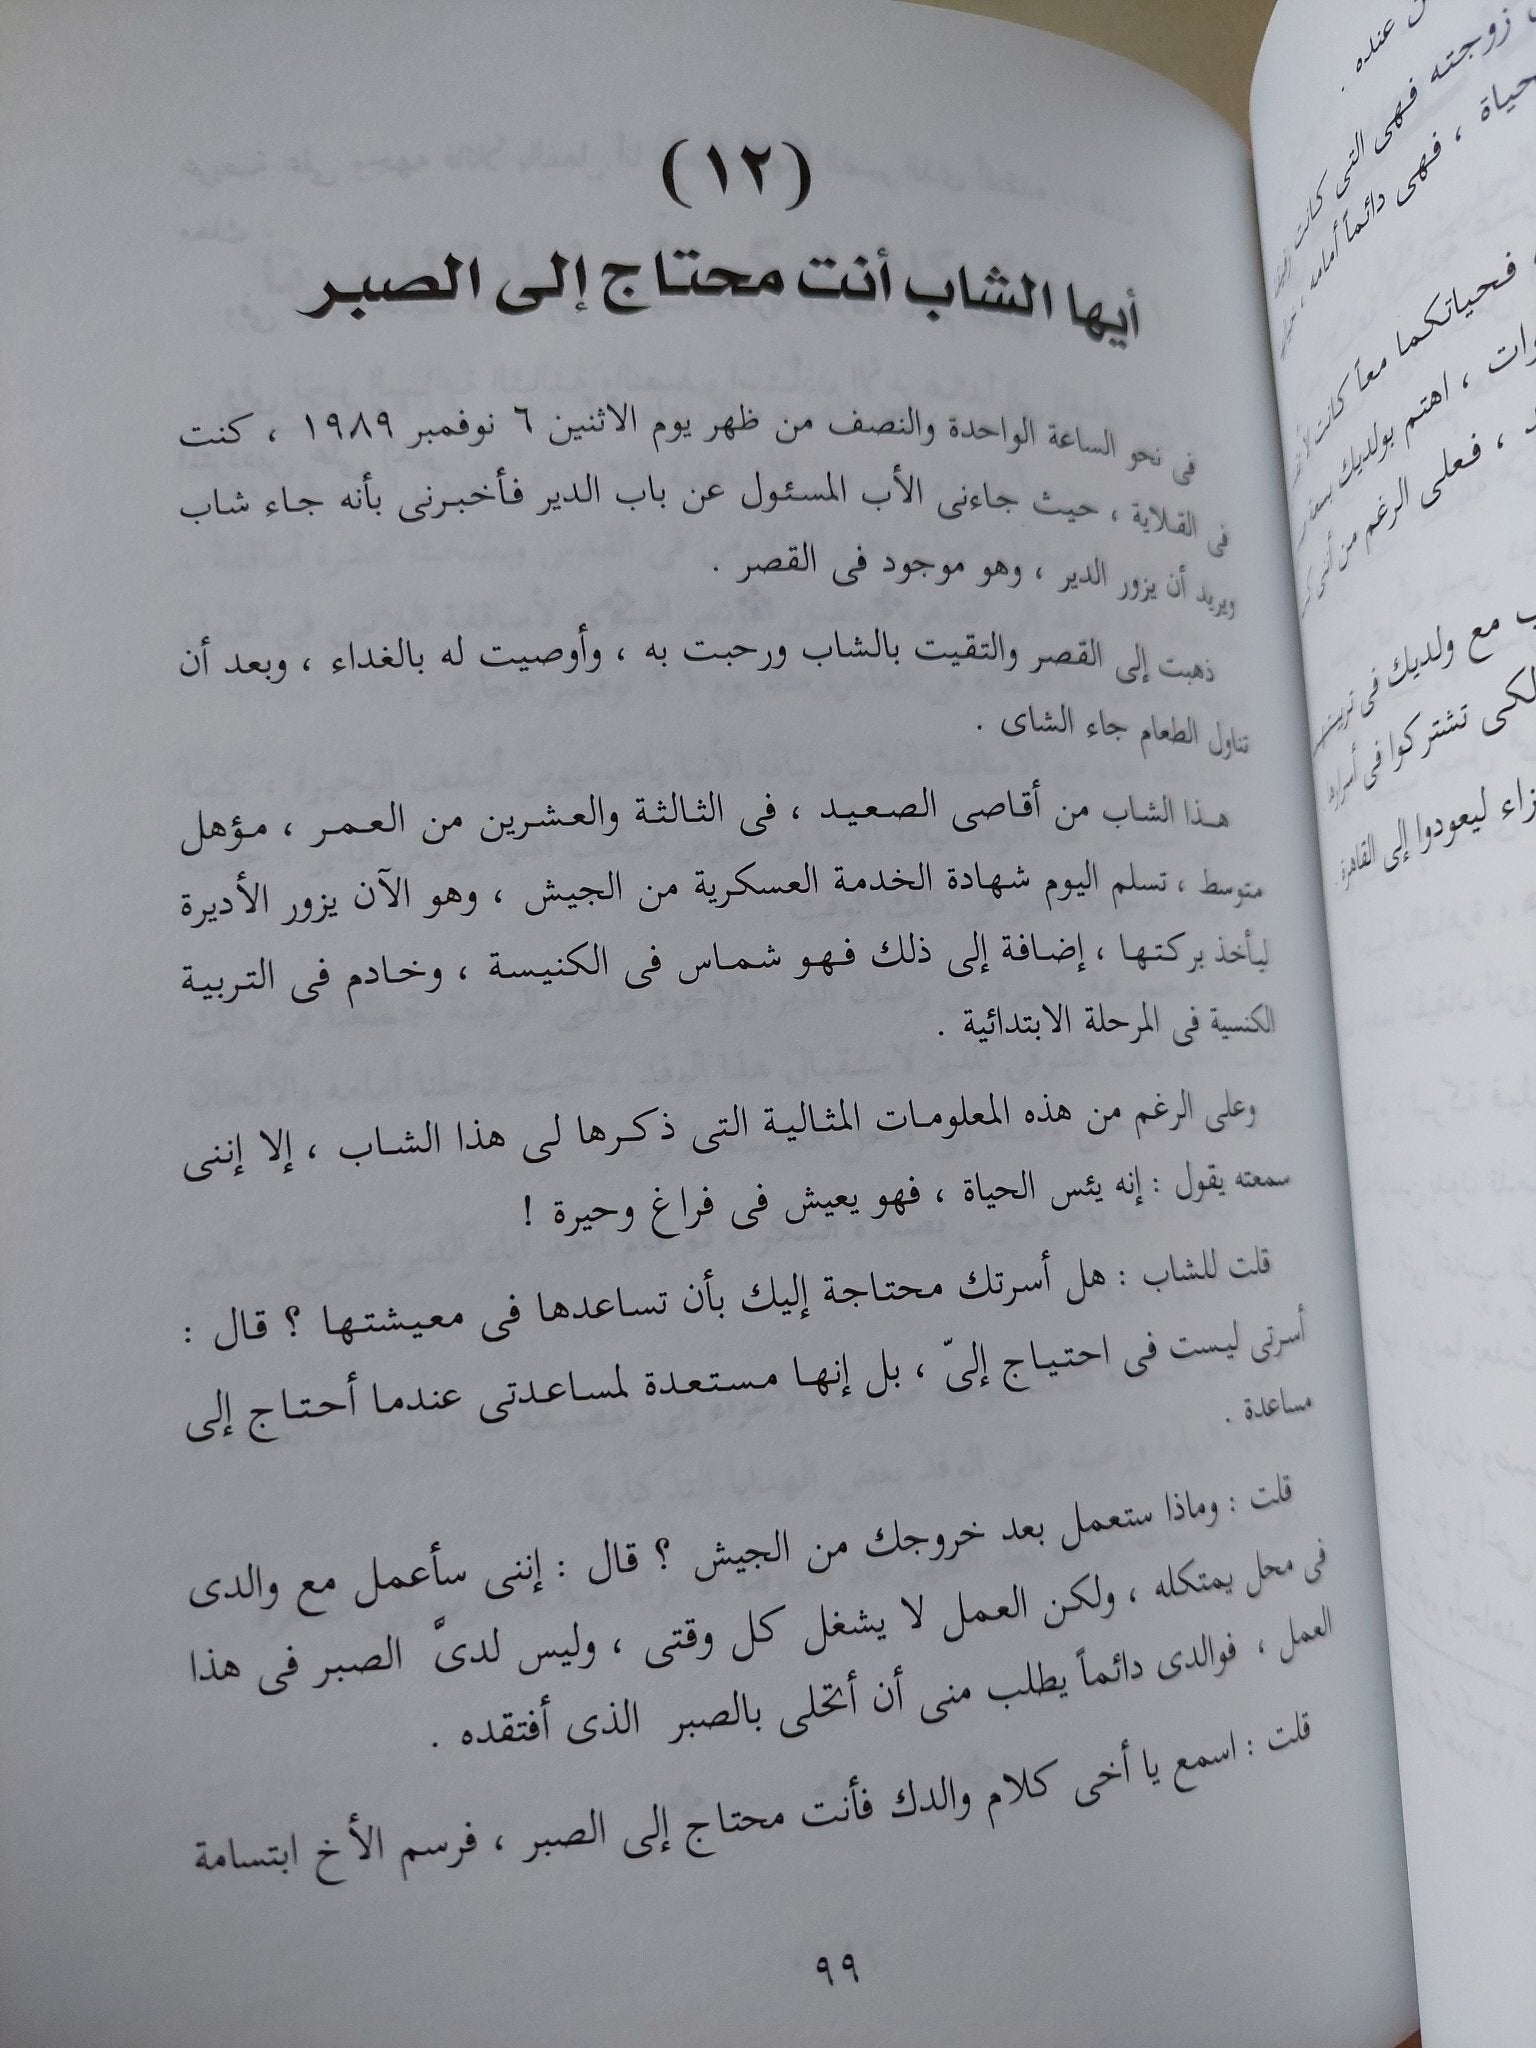 (١٢)
أيها الشاب أنت محتاج إلى الصبر
فى نحو الساعة الواحدة والنصف من ظهر يوم الاثنين ٦ نوفمبر ١٩٨٩ ، كنت
فى القلاية ، حيث جاءنى الأب المسئول عن باب الدير فأخبرنى بأنه جاء شاب
ويريد أن يزور الدير ، وهو موجود فى القصر .
ذهبت إلى القصر والتقيت بالشاب ورحبت به ، وأوصيت له بالغداء ، وبعد أن
تناول الطعام جاء الشاى .
هذا الشاب من أقاصى الصعيد ، فى الثالثة والعشرين من العمر ، مؤهل
متوسط ، تسلم اليوم شهادة الخدمة العسكرية من الجيش ، وهو الآن يزور الأديرة
ليأخذ بركتها ، إضافة إلى ذلك فهو شماس فى الكنيسة ، وخادم فى التربية
الكنسية فى المرحلة الابتدائية .
وعلى الرغم من هذه المعلومات المثالية التى ذكرها لى هذا الشاب ، إلا إننى
سمعته يقول : إنه يئس الحياة ، فهو يعيش فى فراغ وحيرة !
قلت للشاب : هل أسرتك محتاجة إليك بأن تساعدها فى معيشتها ؟ قال :
أسرتى ليست فى احتياج إلىّ ، بل إنها مستعدة لمساعدتى عندما أحتاج إلى
مساعدة .
قلت : وماذا ستعمل بعد خروجك من الجيش ؟ قال : إننى سأعمل مع والدى
فى محل يمتكله ، ولكن العمل لا يشغل كل وقتى ، وليس لدىَّ الصبر فى هذا
العمل ، فوالدى دائماً يطلب منى أن أتحلى بالصبر الذى أفتقده .
قلت : اسمع يا أخى كلام والدك فأنت محتاج إلى الصبر ، فرسم الأخ ابتسامة
٩٩
عنده .
زوجته فهى التى كانت
، فهى دائماً أمامه ،
، فحياتكما معاً كانت
، اهتم بولديك
، فعلى الرغم من أننى
مع ولديك فى
لكى تشتركوا فى أسرارها
ليعودوا إلى القاهرة .